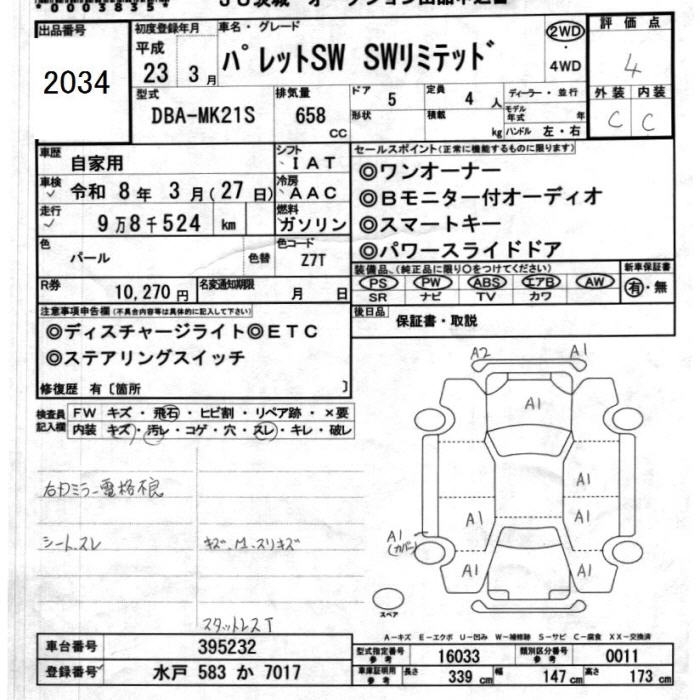 出品番号
2034
初度登録年月
平成
23 3月
車名・グレード
パレットSW SWリミテッド
2WD
・
4WD
評価点
4
外装 内装
C C
型式
DBA-MK21S
排気量
658
CC
ドア 5
形状
定員 4 人
積載 kg
ディーラー・並行
モデル年式 年
ハンドル 左・右
車歴 自家用
車検 令和 8年 3月(27日)
走行 9万8千524 km
色 パール 色替
シフト IAT
冷房 AAC
燃料 ガソリン
色コード Z7T
R券 10,270円
名変通知期限 月 日
セールスポイント(正常に機能するものに限ります)
◎ワンオーナー
◎Bモニター付オーディオ
◎スマートキー
◎パワースライドドア
装備品(純正品に限り○をつけてください)
PS PW ABS エアB AW
SR ナビ TV カワ
新車保証書
有・無
後日品 保証書・取説
注意事項申告欄(不具合内容等は具体的に記入して下さい)
◎ディスチャージライト◎ETC
◎ステアリングスイッチ
修復歴 有〔箇所 〕
検査員記入欄
FW キズ・飛石・ヒビ割・リペア跡・×要
内装 キズ・汚レ・コゲ・穴・スレ・キレ・破レ
右ドミラー電格不良
シートスレ
キズ、M、スリキズ
スタットレスT
A2 A1
A1
A1
A1 A1
A1
(カバー)
A1 A1
スペア
A-キズ E-エクボ U-凹み W-補修跡 S-サビ C-腐食 XX-交換済
車台番号 395232
登録番号 水戸 583 か 7017
型式指定番号 参考 16033
類別区分番号 参考 0011
車庫証明用 参考 長さ 339 cm 幅 147 cm 高さ 173 cm